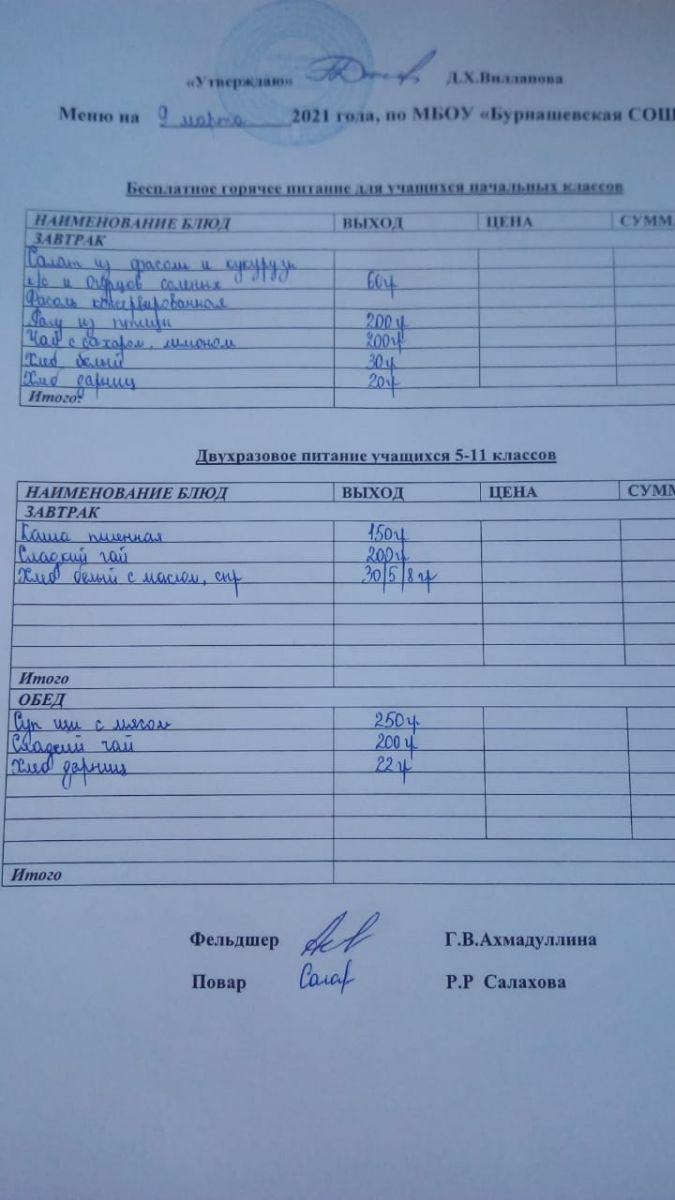 «Утверждаю» Д.Х.Вилданова
Меню на 9 марта 2021 года, по МБОУ «Бурнашевская СОШ
Бесплатное горячее питание для учащихся начальных классов
НАИМЕНОВАНИЕ БЛЮД ВЫХОД ЦЕНА СУММ
ЗАВТРАК
Салат из фасоли и кукурузы
к/с и огурцов соленых 60г
Фасоль консервированная
Рагу из птицы 200г
Чай с сахаром, лимоном 200г
Хлеб белый 30г
Хлеб дарниц 20г
Итого:
Двухразовое питание учащихся 5-11 классов
НАИМЕНОВАНИЕ БЛЮД ВЫХОД ЦЕНА СУММ
ЗАВТРАК
Каша пшенная 150г
Сладкий чай 200г
Хлеб белый с маслом, сыр 30/5/8 гр
Итого
ОБЕД
Суп щи с мясом 250г
Сладкий чай 200г
Хлеб дарниц 22г
Итого
Фельдшер Г.В.Ахмадуллина
Повар Салах Р.Р Салахова